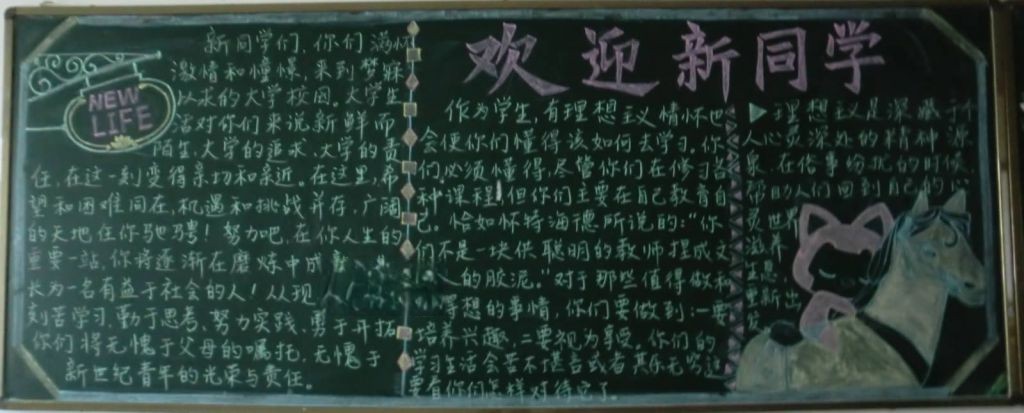 欢迎新同学
NEW
LIFE
新同学们，你们满怀
激情和憧憬，来到梦寐
以求的大学校园。大学生
活对你们来说新鲜而
陌生，大学的追求、大学的责
任，在这一刻变得亲切和亲近。在这里，希
望和困难同在，机遇和挑战并存，广阔
的天地任你驰骋！努力吧，在你人生的
重要一站，你将逐渐在磨炼中成
长为一名有益于社会的人！从现
刻苦学习、勤于思考、努力实践、勇于开拓
你们将无愧于父母的嘱托，无愧于
新世纪青年的光荣与责任。
作为学生，有理想主义情怀也
会使你们懂得该如何去学习。你
们必须懂得，尽管你们在修习各
种课程，但你们主要在自己教育自
己。恰如怀特海德所说的：“你
们不是一块供聪明的教师捏成文
人的胶泥。”对于那些值得做和
得想的事情，你们要做到：一要
培养兴趣，二要视为享受。你们的
学习生活会苦不堪言或者其乐无穷这
要看你们怎样对待它了。
理想主义是深藏于个
人心灵深处的精神源
泉，在俗事纷扰的时候，
帮助人们回到自己的心
灵世界
滋养
生息，
重新出
发